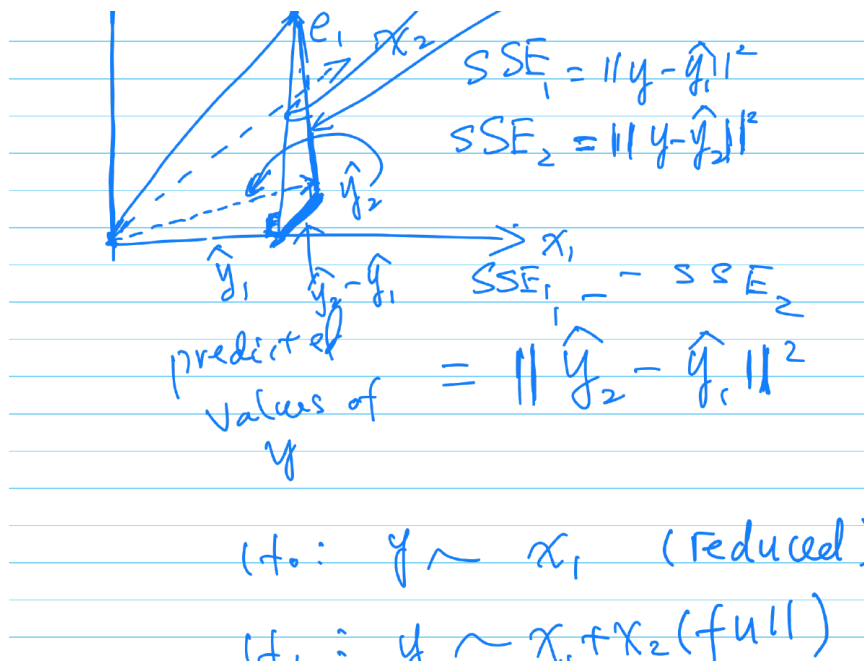 e₁ x₂
SSE₁ = ||y - ŷ₁||²
SSE₂ = ||y - ŷ₂||²
ŷ₂
x₁
ŷ₁ ŷ₂ - ŷ₁
SSE₁ - SSE₂
predicted
values of
y
= ||ŷ₂ - ŷ₁||²
H₀: y ~ x₁ (reduced)
H₁: y ~ x₁ + x₂ (full)